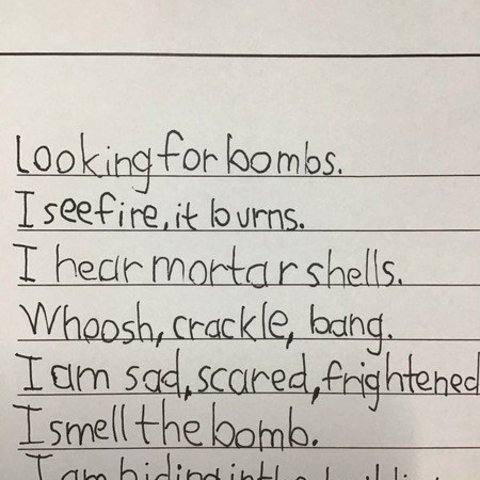 Looking for bombs.
I see fire, it burns.
I hear mortar shells.
Whoosh, crackle, bang.
I am sad, scared, frightened
I smell the bomb.
I am hiding in the